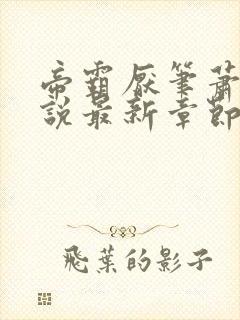 帝霸厭筆蕭
說最新章節
飛葉的影子